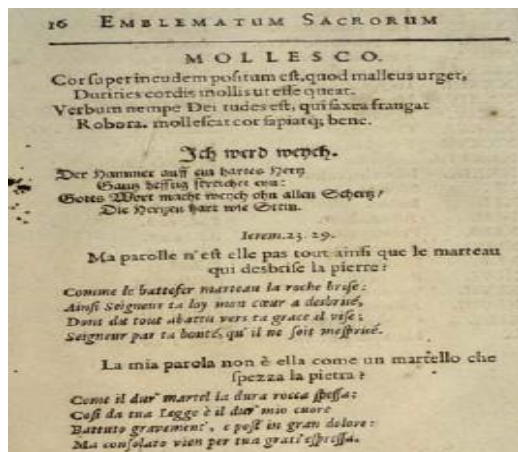 16 EMBLEMATUM SACRORUM
MOLLESCO.
Cor ſuper incudem poſitum eſt, quod malleus urget,
Durities cordis mollis ut eſſe queat.
Verbum nempe Dei tudes eſt, qui ſaxea frangat
Robora. molleſcat cor ſapiatq; bene.
Ich werd weych.
Der Hammer auff ein hartes Hertz
Gantz hefftig ſtreichet ein:
Gottes Wort macht weych ohn allen Schertz/
Die Hertzen hart wie Stein.
Ierem. 23. 29.
Ma parolle n'eſt elle pas tout ainſi que le marteau
qui desbriſe la pierre?
Comme le battefer marteau la roche briſe:
Ainſi Seigneur ta loy mon cœur a desbriſé,
Dont du tout abattu vers ta grace il viſe;
Seigneur par ta bonté, qu'il ne ſoit meſpriſé.
La mia parola non è ella come un martello che
ſpezza la pietra?
Come il dur' martel la dura rocca ſpeſſa:
Coſi da tua Legge è il dur' mio cuore
Battuto gravement', e poſt' in gran dolore:
Ma conſolato vien per tua grati' eſpreſſa.